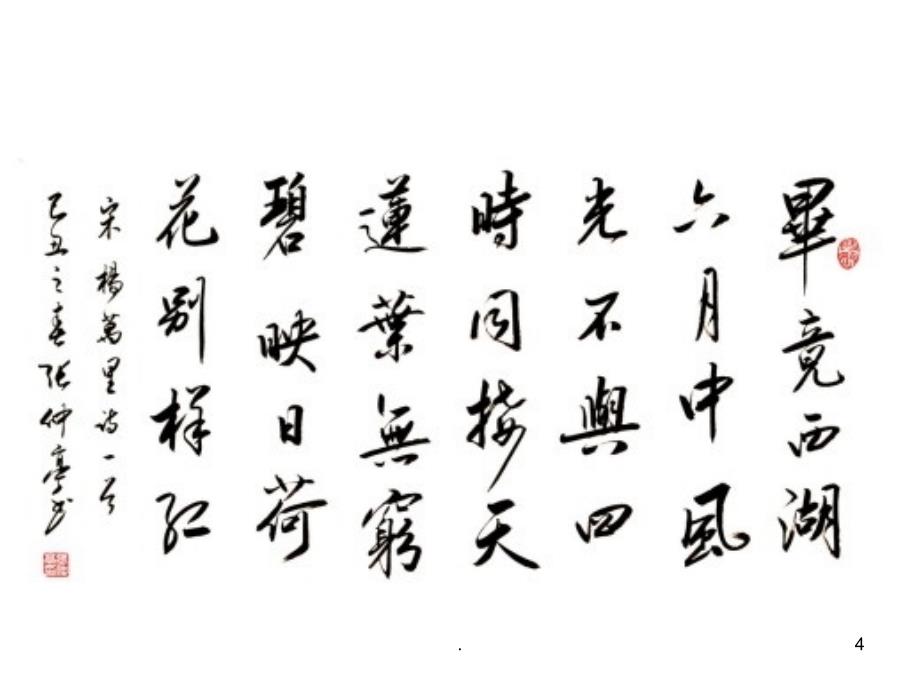 畢竟西湖
六月中風
光不與四
時同接天
蓮葉無窮
碧映日荷
花别樣紅
宋楊萬里诗一首
己丑之春张仲亭书
.
4